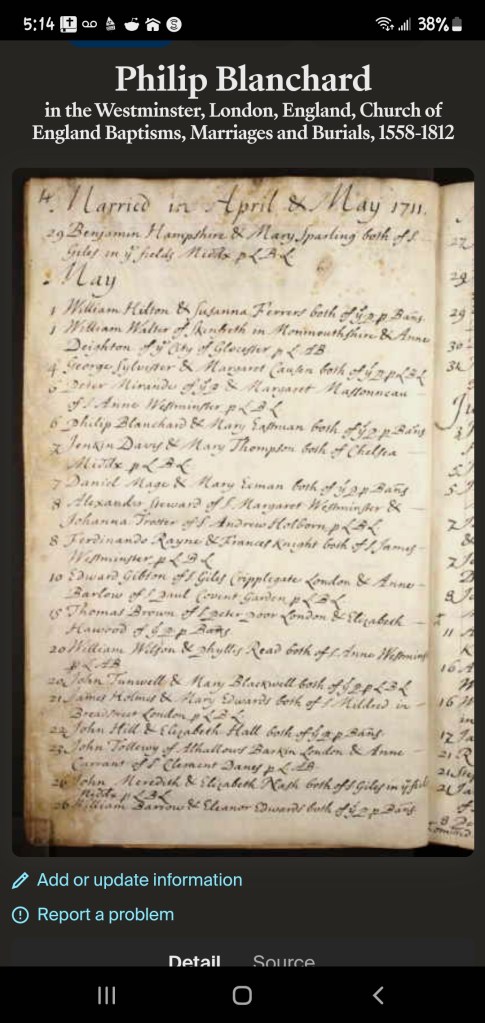 5:14
38%
Philip Blanchard
in the Westminster, London, England, Church of
England Baptisms, Marriages and Burials, 1558-1812
Married in April & May 1711.
29 Benjamin Hampshire & Mary Sparling both of S.
Giles in ye fields Middx p L B L
May
1 William Hilton & Susanna Ferrers both of ye p p Bans.
1 William Walter of Skinfreth in Monmouthshire & Anne
Deighton of ye City of Glocester p L AB
4 George Sylvester & Margaret Causen both of ye p p L B L
5 Peter Mirande of & Margaret Massonneau
of S. Anne Westminster p L B L
6 Philip Blanchard & Mary Eastman both of ye p p Bans
7 Jenkin Davis & Mary Thompson both of Chelsea
Middx p L B L
7 Daniel Mage & Mary Eeman both of ye p p Bans
8 Alexander Steward of S. Margaret Westminster &
Johanna Trotter of S. Andrew Holborn p L B L
8 Ferdinando Rayne & Frances Knight both of S. James
Westminster p L B L
10 Edward Gibton of S. Giles Cripplegate London & Anne
Barlow of S. Paul Covent Garden p L B L
15 Thomas Brown of S. Peter Poor London & Elizabeth
Hawood of ye p p Bans
20 William Wilson & Phyllis Read both of S. Anne Westmins
p L AB
20 John Tunwell & Mary Blackwell both of ye p p L B L
21 James Holmes & Mary Edwards both of S. Mildred in
Breadstreet London p L B L
22 John Hill & Elizabeth Hall both of ye p p Bans
23 John of Alhallows Barkin London & Anne
Carrant of S. Clement Danes p L AB
26 John Meredith & Elizabeth Nash both of S. Giles in ye
Middx p L B L
26 William Barrow & Eleanor Edwards both of ye p p Bans
Add or update information
Report a problem
Detail Source